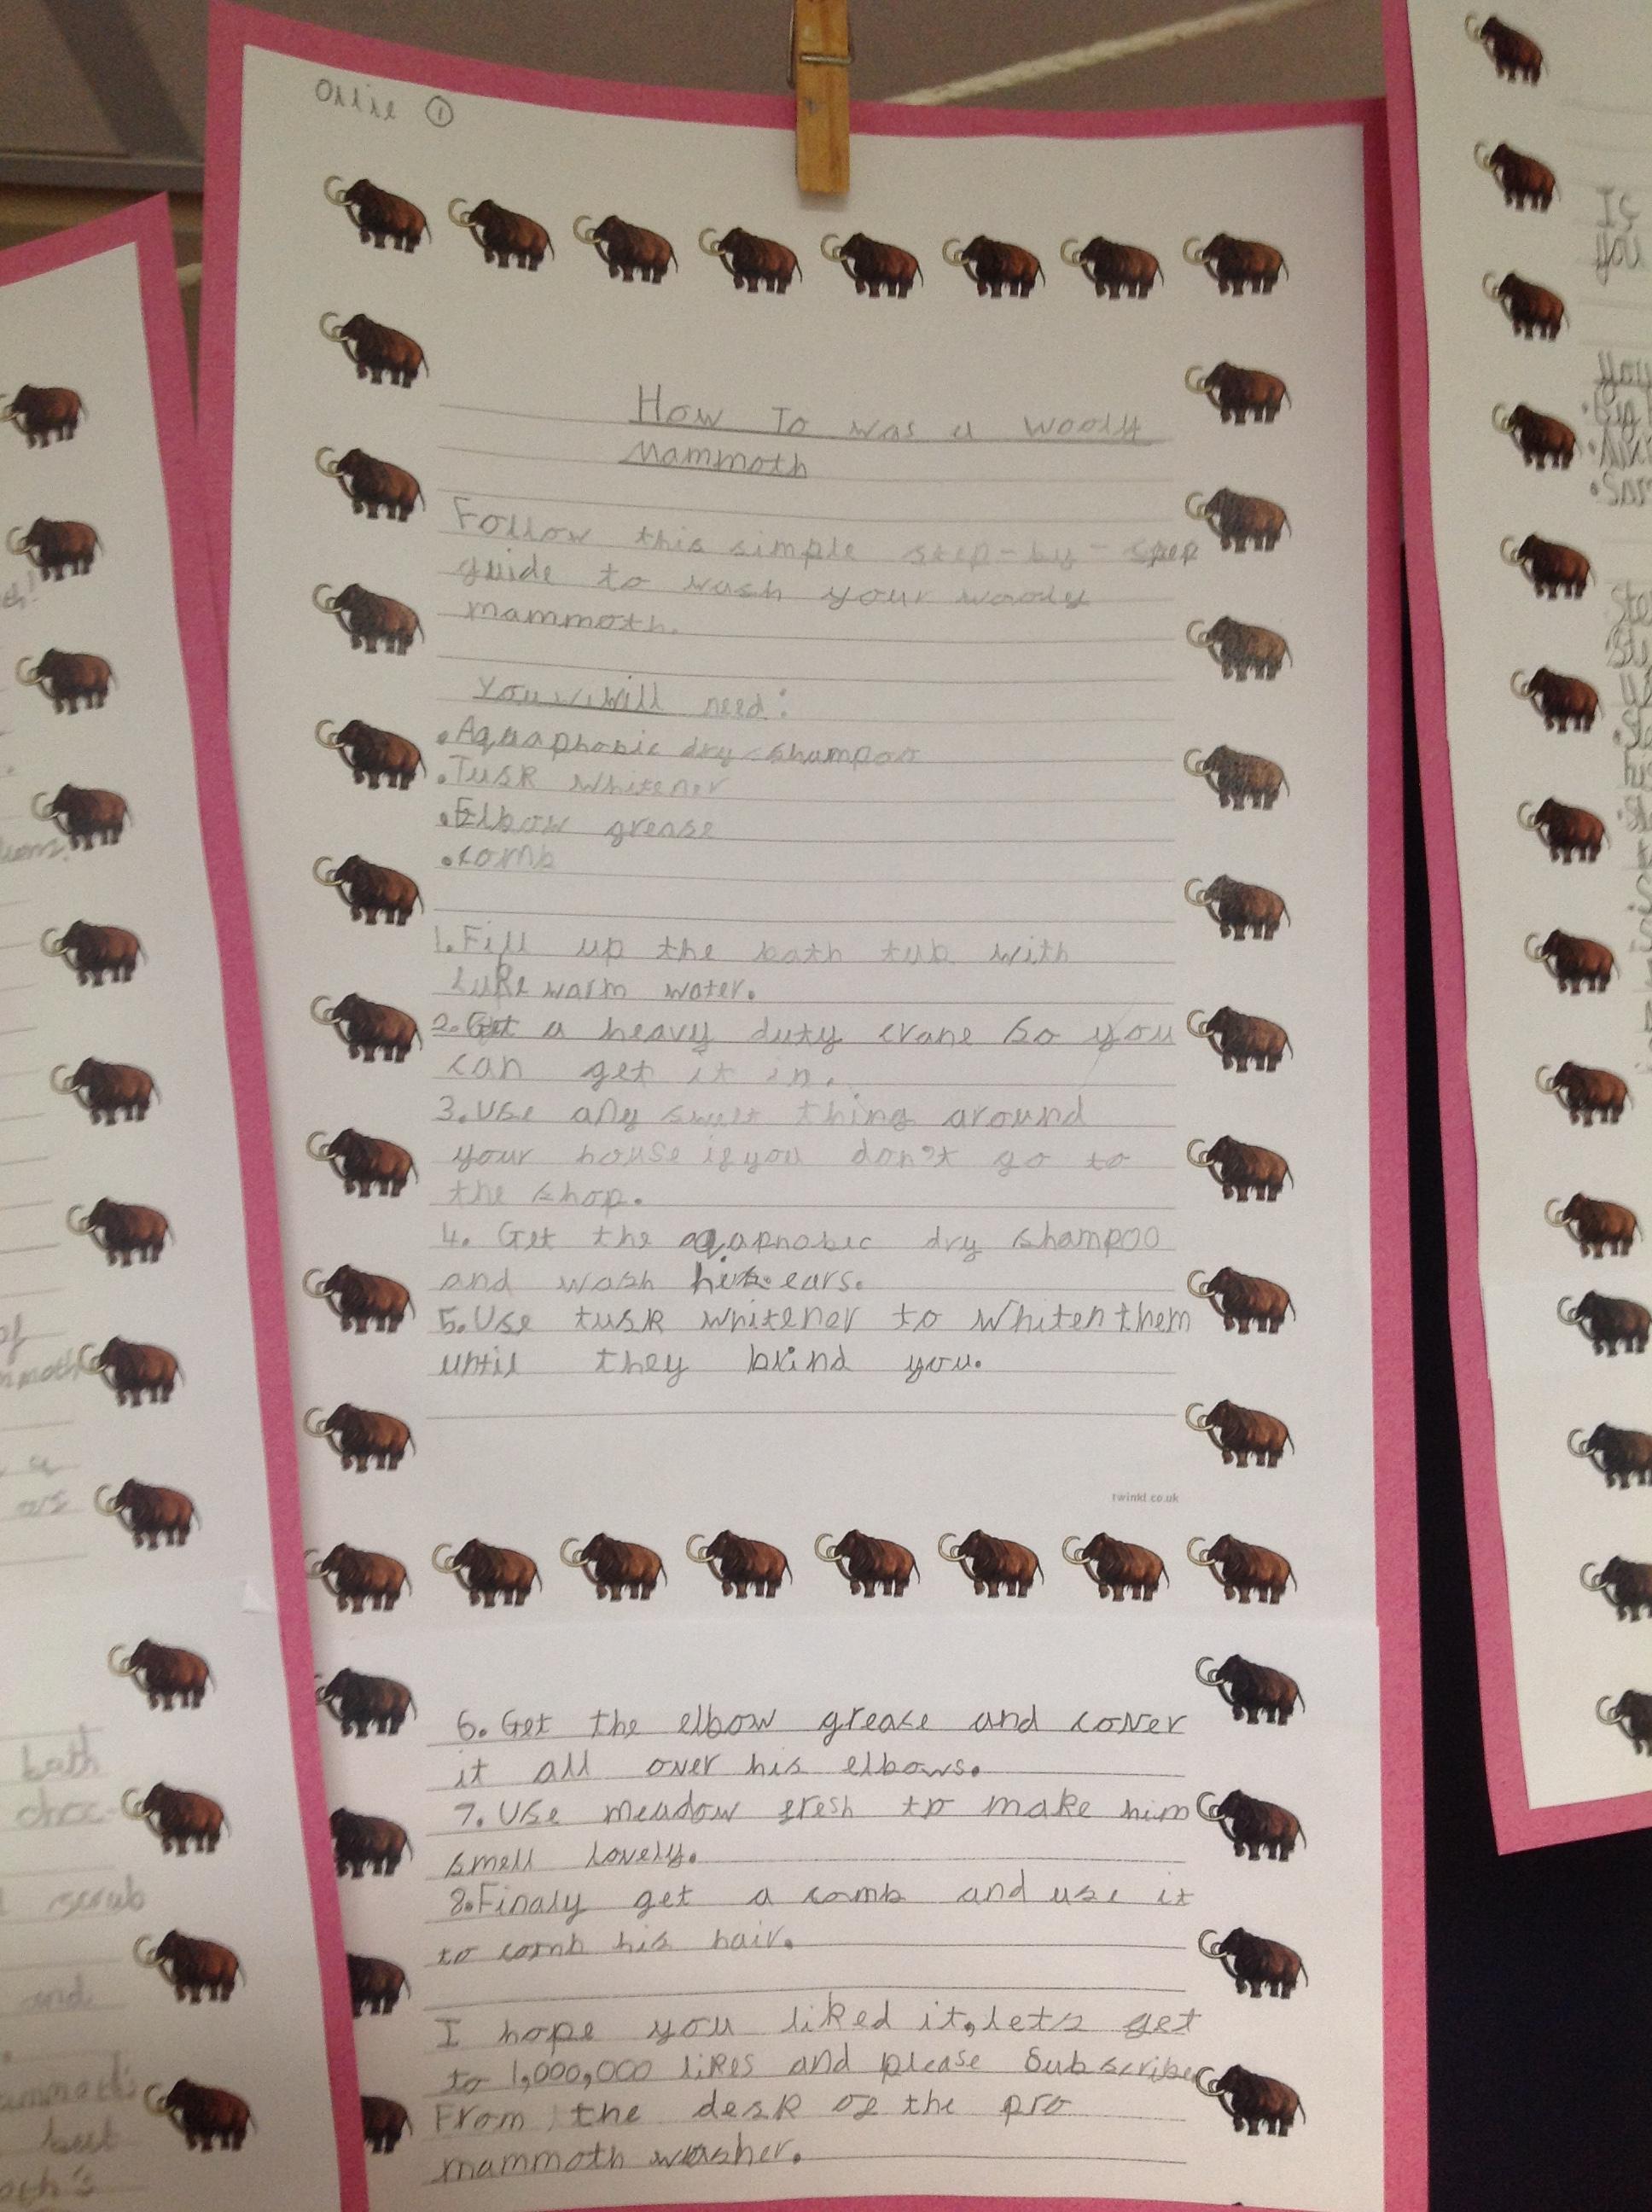 Ollie 1
How To was a woolly
Mammoth
Follow this simple step-by-step
guide to wash your woolly
mammoth.
You will need:
.Aquaphobic dry shampoo
.Tusk whitener
.Elbow grease
.comb
1.Fill up the bath tub with
Luke warm water.
2.Get a heavy duty crane so you
can get it in.
3.Use any sweet thing around
your house if you don't go to
the shop.
4. Get the aqaphobic dry shampoo
and wash his ears.
5.Use tusk whitener to whiten them
until they blind you.
twinkl.co.uk
6.Get the elbow grease and cover
it all over his elbows.
7.Use meadow fresh to make him
smell lovely.
8.Finaly get a comb and use it
to comb his hair.
I hope you liked it, lets get
to 1,000,000 likes and please Subscribe
From the desk of the pro
mammoth washer.
bath
choc-
scrub
and
best